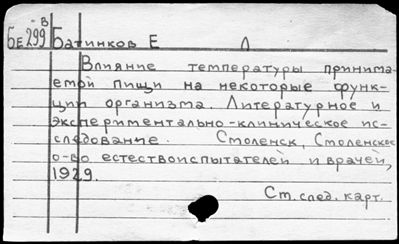 -В
БЕ 299 Батинков Е Л
Влияние температуры принима-
емой пищи на некоторые функ-
ции организма. Литературное и
экспериментально-клиническое ис-
следование. Смоленск, Смоленское
о-во естествоиспытателей и врачей,
1929.
Ст. след. карт.